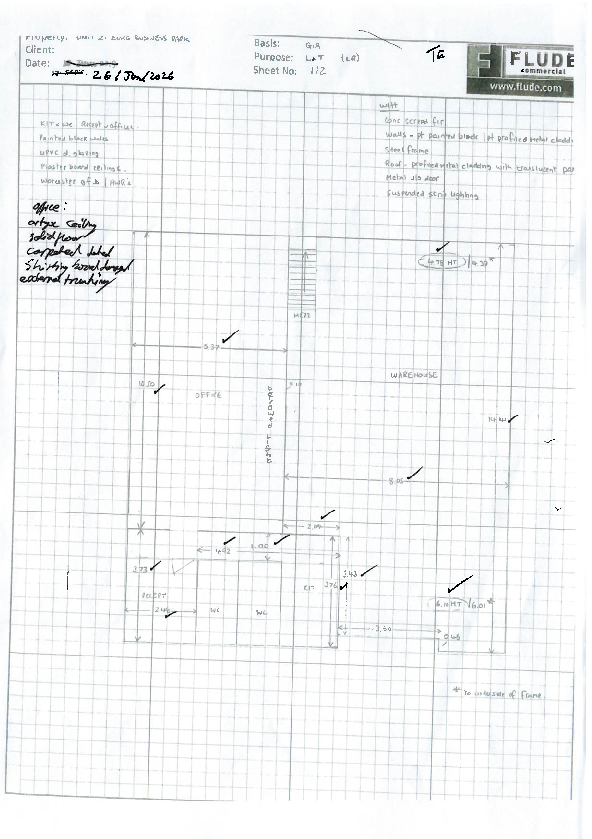 Property: UNIT 2: EURO BUSINESS PARK
Client:
Date:
26/Jan/2026
Basis: GIA
Purpose: L&T (LR)
Sheet No: 1/2
TG
FLUDE
commercial
www.flude.com
KIT & WC Recept & offices
Painted block walls
UPVC d. glazing
Plasterboard ceilings.
office:
artex ceiling
solid floor
carpeted dated
Skirting board damaged
external trunking
W/H
Conc screed flr
Walls - pt painted blocks | pt profiled metal cladding
Steel frame
Roof - profiled metal cladding with translucent
Metal r/s door
Suspended strip lighting
/4.39*
MEZZ
5.37
10.50
OFFICE
0.10
WAREHOUSE
14.44
8.05
2.09
4.92
1.00
3.73
3.43
3.76
KIT
RECEPT
2.46
WC
WC
6.11 HT /6.01*
3.50
0.48
* To underside of frame.